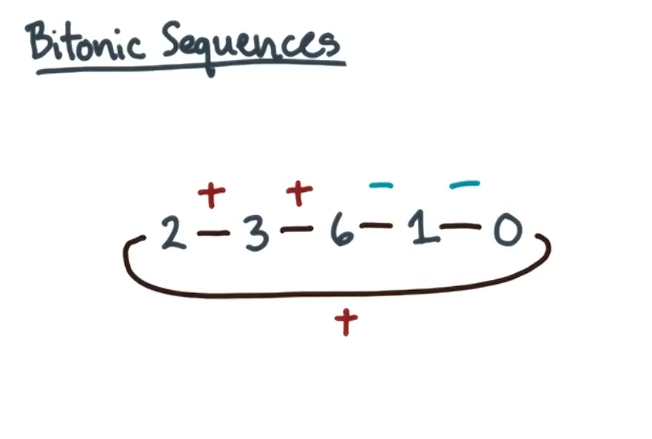 Bitonic Sequences
+ + − −
2 − 3 − 6 − 1 − 0
+